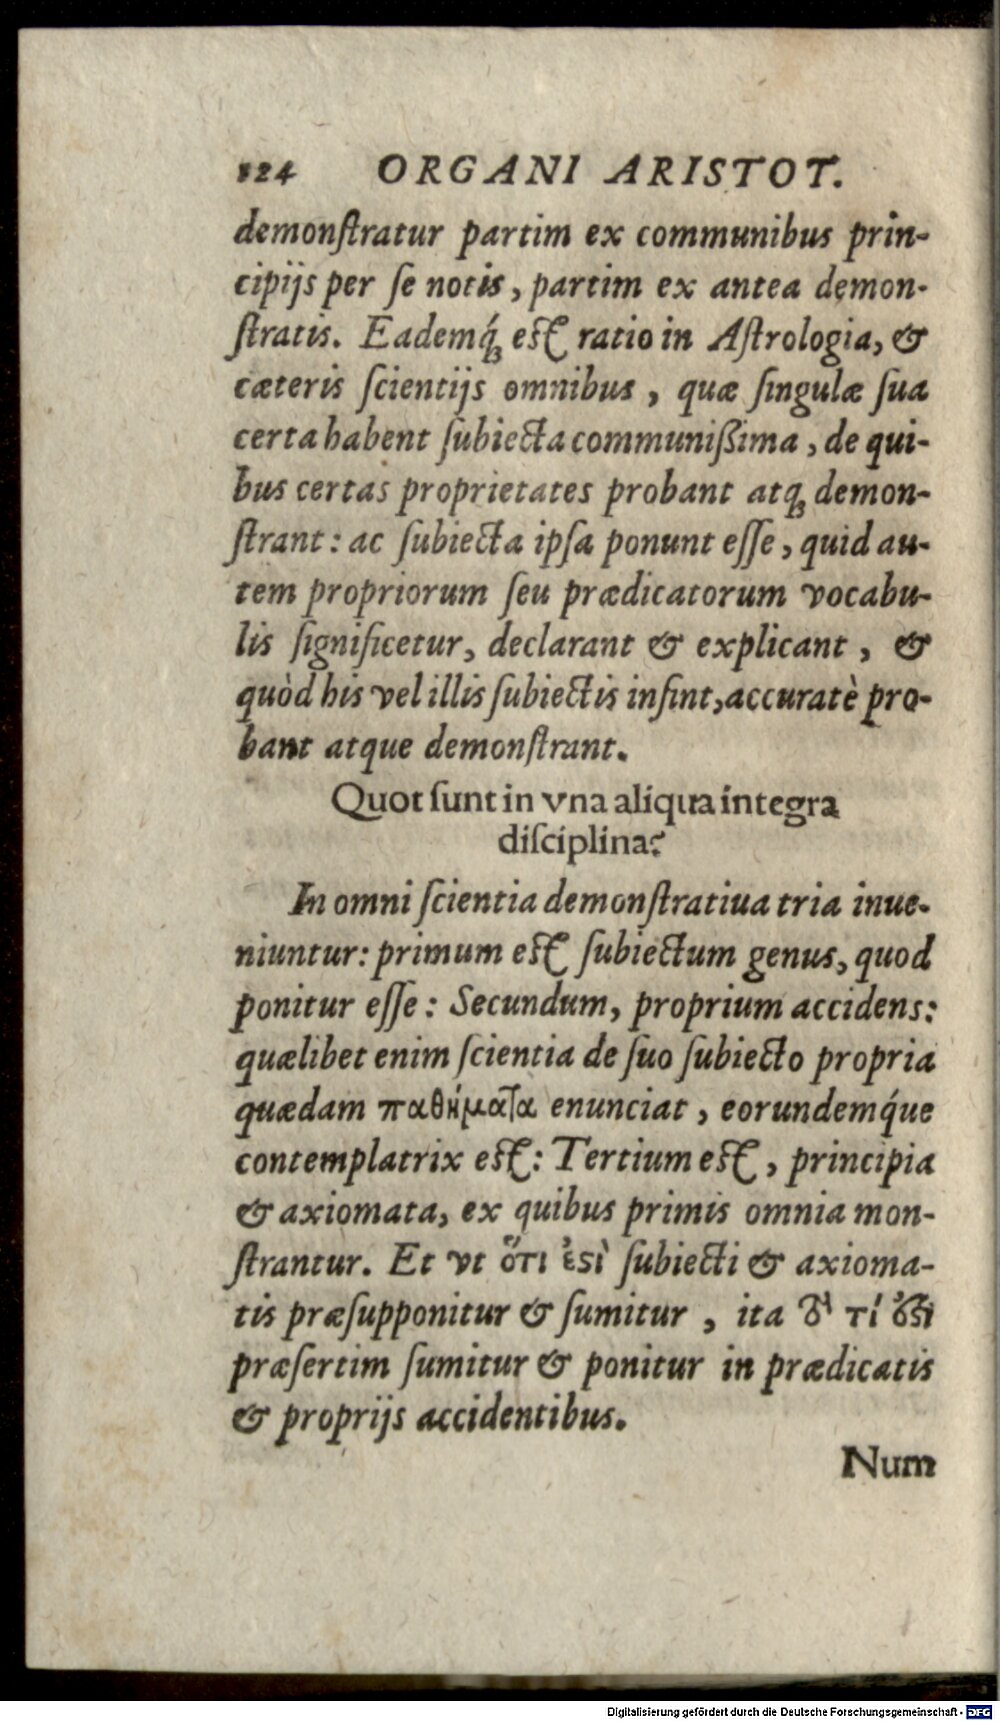 124 ORGANI ARISTOT.
demonſtratur partim ex communibus prin-
cipijs per ſe notis, partim ex antea demon-
ſtratis. Eademq́ꝫ eſt ratio in Aſtrologia, &
cæteris ſcientijs omnibus, quæ ſingulæ ſua
certa habent ſubiecta communißima, de qui-
bus certas proprietates probant atqꝫ demon-
ſtrant: ac ſubiecta ipſa ponunt eſſe, quid au-
tem propriorum ſeu prædicatorum vocabu-
lis ſignificetur, declarant & explicant, &
quòd his vel illis ſubiectis inſint, accuratè pro-
bant atque demonſtrant.
Quot ſunt in vna aliqua integra
diſciplina?
In omni ſcientia demonſtratiua tria inue-
niuntur: primum eſt ſubiectum genus, quod
ponitur eſſe: Secundum, proprium accidens:
quælibet enim ſcientia de ſuo ſubiecto propria
quædam παθήματα enunciat, eorundemq́ue
contemplatrix eſt: Tertium eſt, principia
& axiomata, ex quibus primis omnia mon-
ſtrantur. Et vt ὅτι ἐϛὶ ſubiecti & axioma-
tis præſupponitur & ſumitur, ita τὸ τί ἐϛι
præſertim ſumitur & ponitur in prædicatis
& proprijs accidentibus.
Num
Digitalisierung gefördert durch die Deutsche Forschungsgemeinschaft - DFG